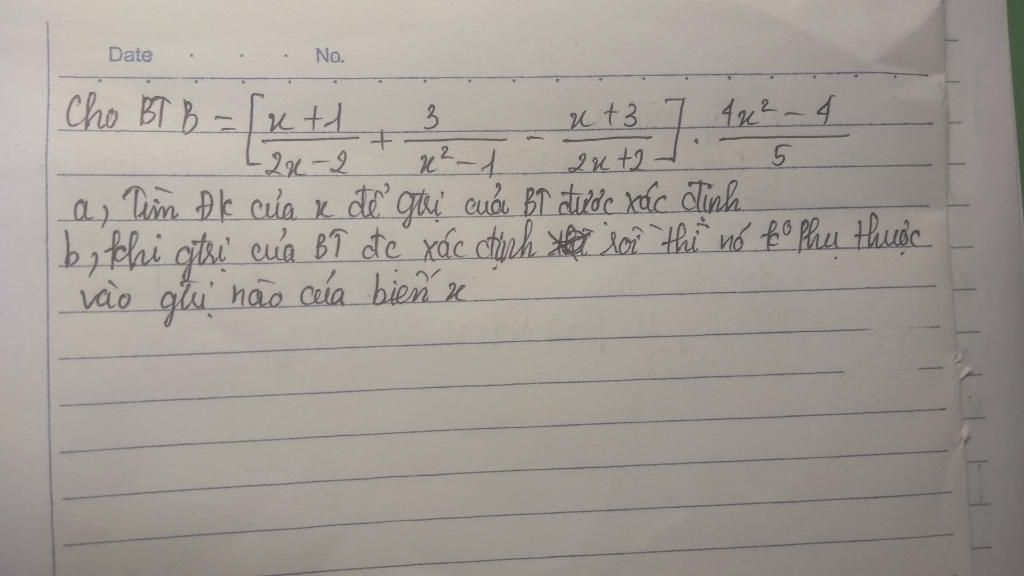 Date . . . No.
Cho BT B = [(x+1)/(2x-2) + 3/(x²-1) - (x+3)/(2x+2)] . (4x²-4)/5
a, Tìm Đk của x để gtrị của BT được xác định
b, khi gtrị của BT đc xác định rồi thì nó k° Phụ thuộc
vào gtrị nào của biến x